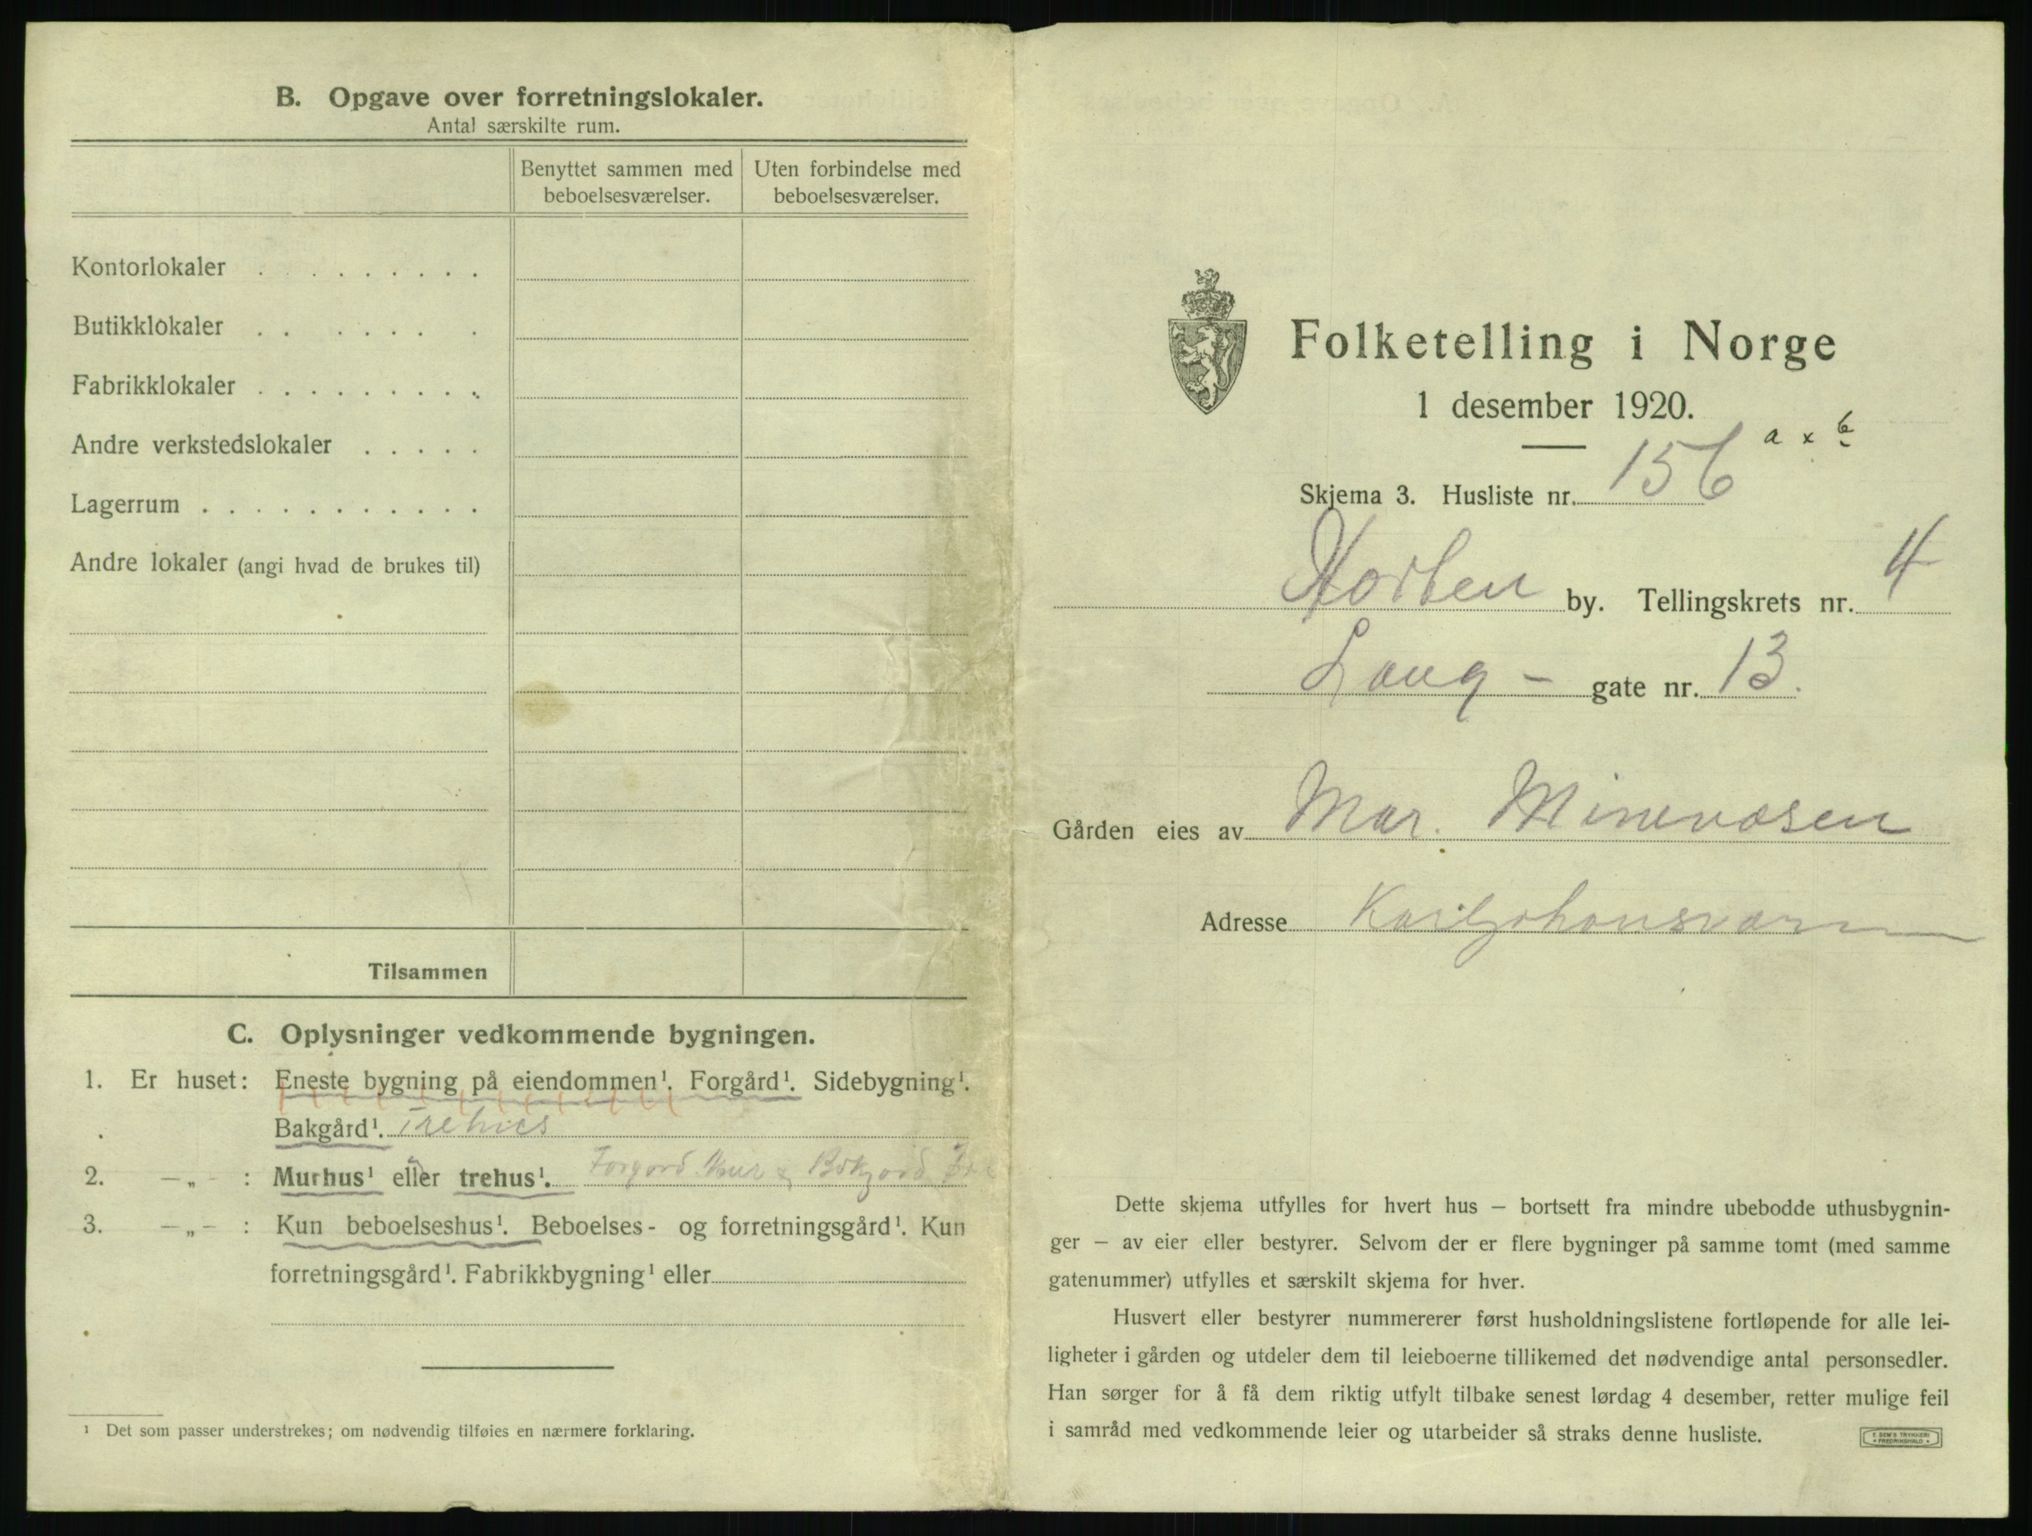 B. Opgave over forretningslokaler.
Antal særskilte rum.
Benyttet sammen med beboelsesværelser.
Uten forbindelse med beboelsesværelser.
Kontorlokaler . . . . . . . . .
Butikklokaler . . . . . . .
Fabrikklokaler . . . . . . . . .
Andre verkstedslokaler . . . . .
Lagerrum . . . . . . . . . . .
Andre lokaler (angi hvad de brukes til)
Tilsammen
C. Oplysninger vedkommende bygningen.
1. Er huset: Eneste bygning på eiendommen¹. Forgård¹. Sidebygning¹.
Bakgård¹. Trehus
2. —„— : Murhus¹ eller trehus¹. Forgord Mur & Bakgord Tre
3. —„— : Kun beboelseshus¹. Beboelses- og forretningsgård¹. Kun
forretningsgård¹. Fabrikkbygning¹ eller
¹ Det som passer understrekes; om nødvendig tilføies en nærmere forklaring.
Folketelling i Norge
1 desember 1920.
Skjema 3. Husliste nr. 156 a x b
Horten by. Tellingskrets nr. 4
Lang - gate nr. 13.
Gården eies av Mar. Minevæsen
Adresse Karljohansværn
Dette skjema utfylles for hvert hus – bortsett fra mindre ubebodde uthusbygnin-
ger – av eier eller bestyrer. Selvom der er flere bygninger på samme tomt (med samme
gatenummer) utfylles et særskilt skjema for hver.
Husvert eller bestyrer nummererer først husholdningslistene fortløpende for alle lei-
ligheter i gården og utdeler dem til leieboerne tillikemed det nødvendige antal personsedler.
Han sørger for å få dem riktig utfylt tilbake senest lørdag 4 desember, retter mulige feil
i samråd med vedkommende leier og utarbeider så straks denne husliste.
E SEM'S TRYKKERI
FREDRIKSHALD